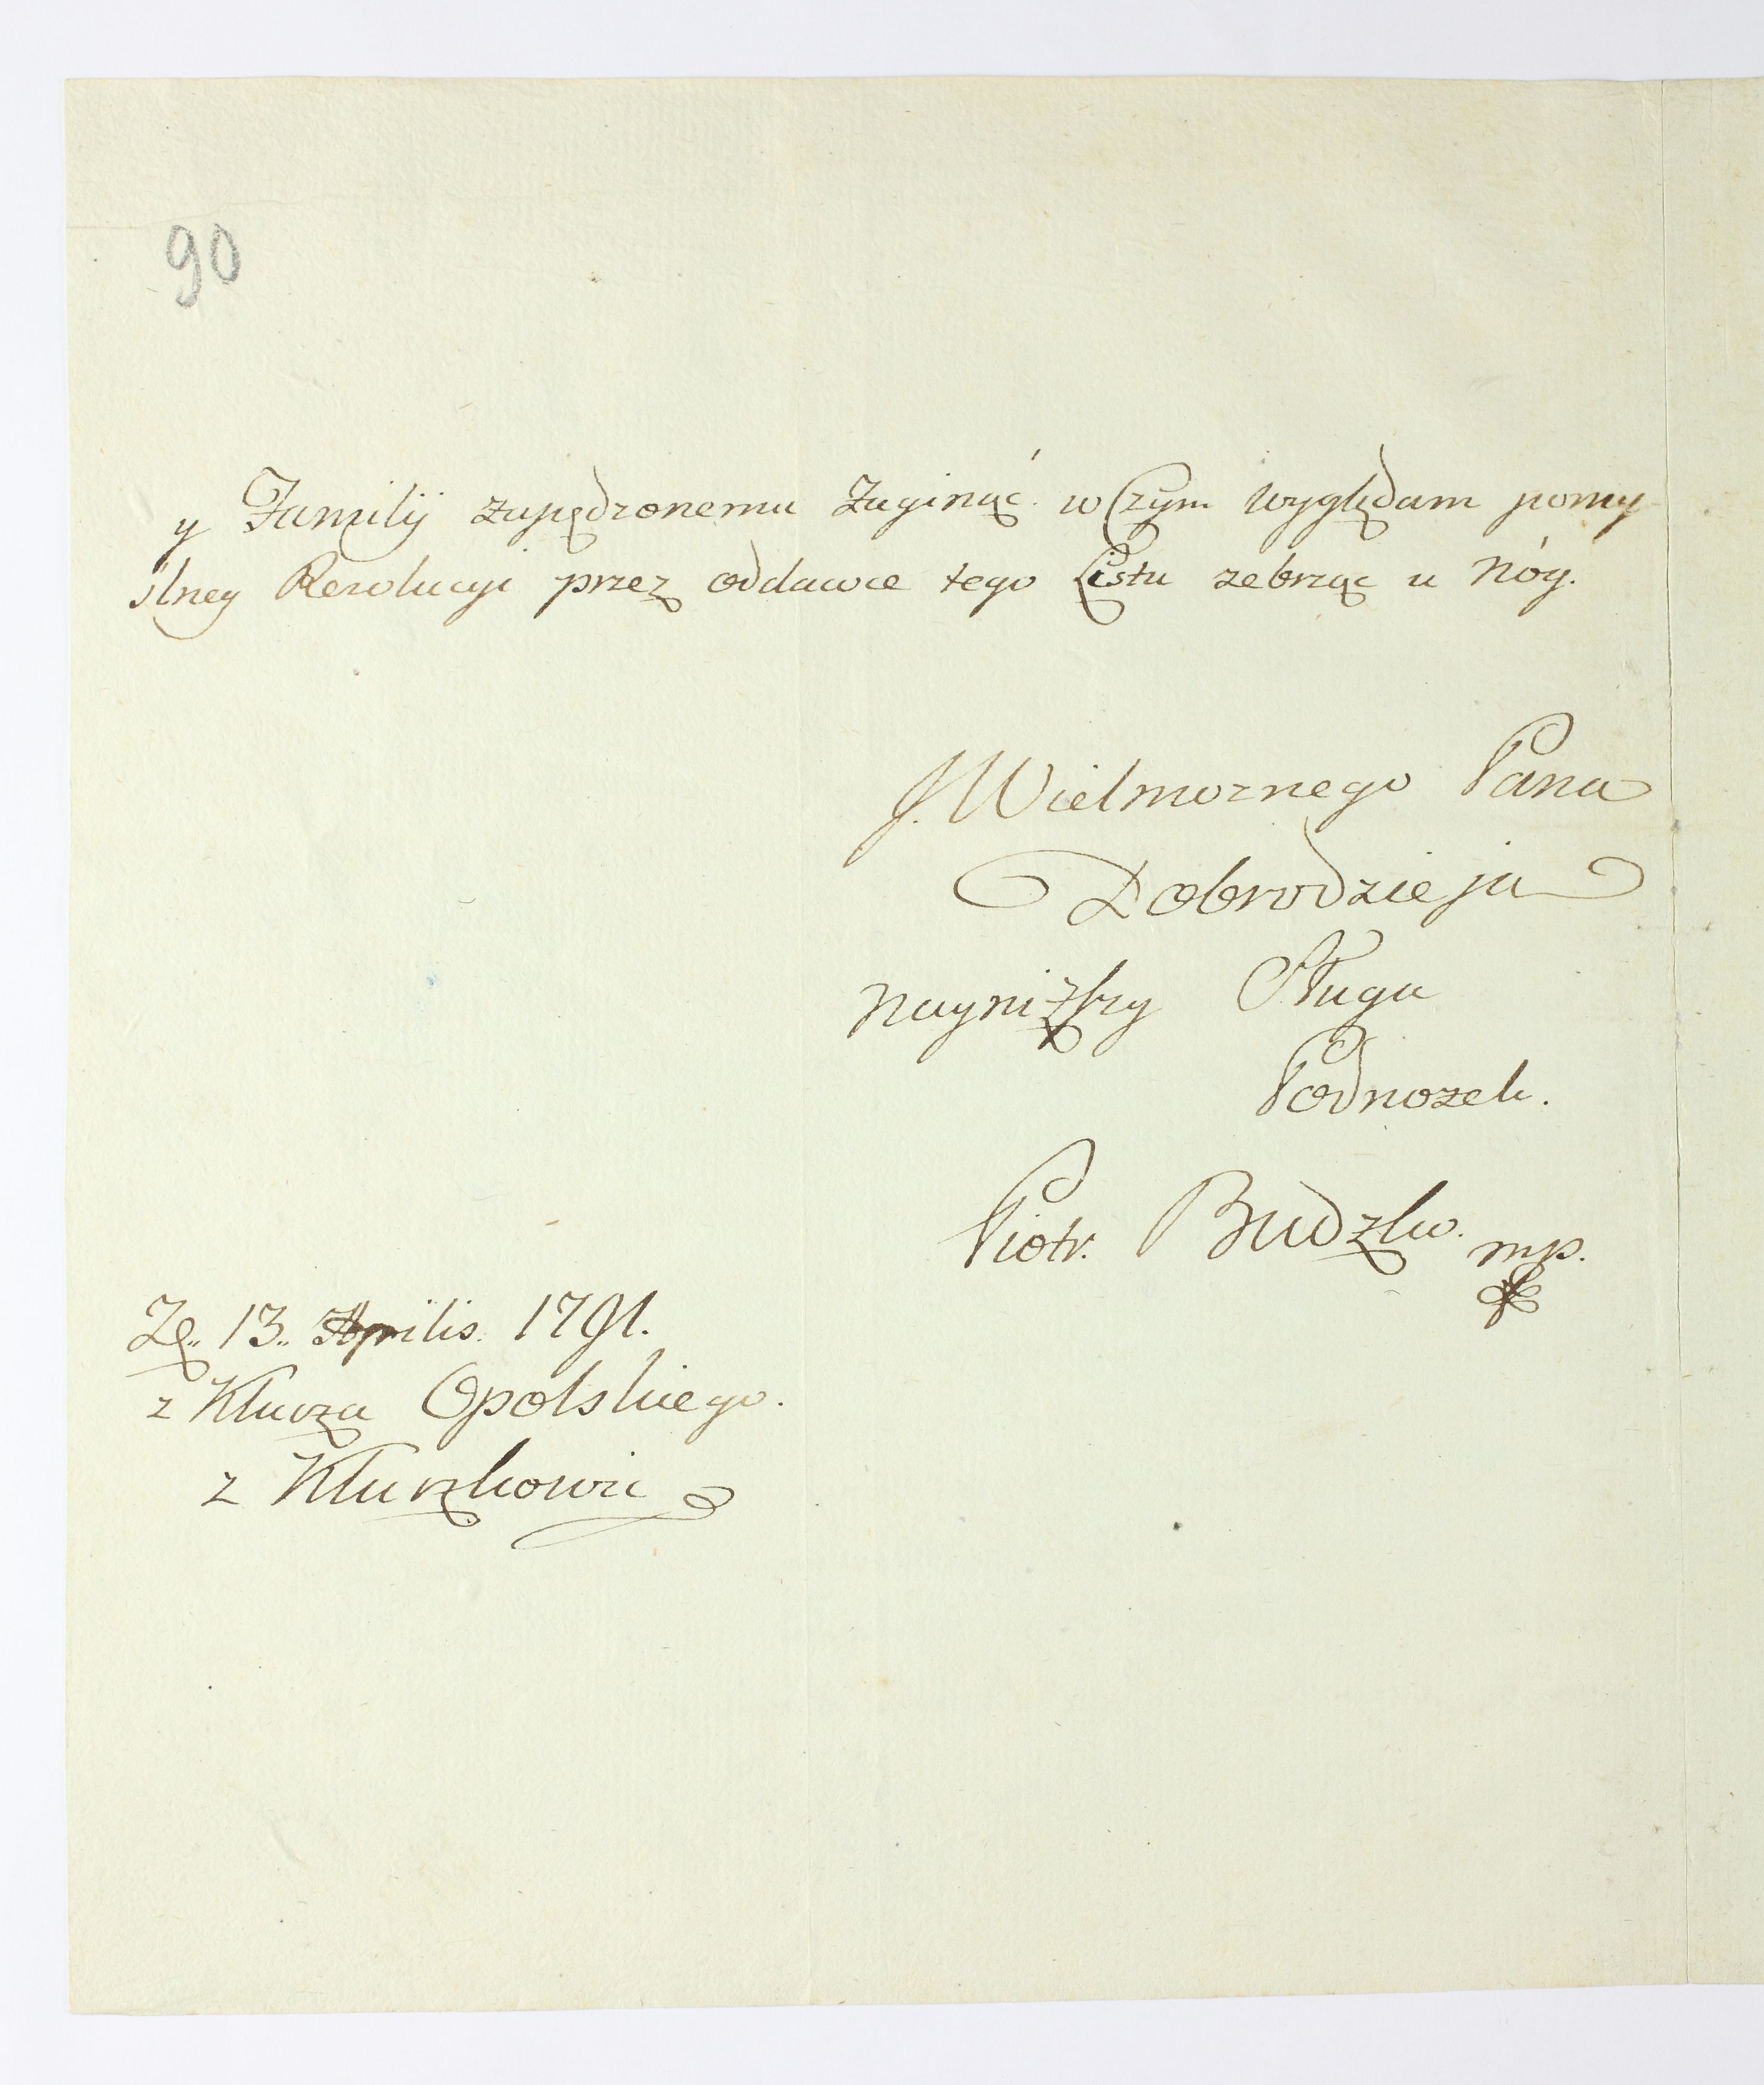 90
y Familij zapędzonemu zaginąć. w Czym wyglądam pomy-
slney Rezolucyi przez oddawce tego Listu zebrząc u Nóg.
J. Wielmoznego Pana
Dobrodzieja
nayniższy Sługa
Podnozek.
Piotr. Budzko. mp.
13.. Aprilis. 1791.
z Klucza Opolskiego.
z Kluczkowic